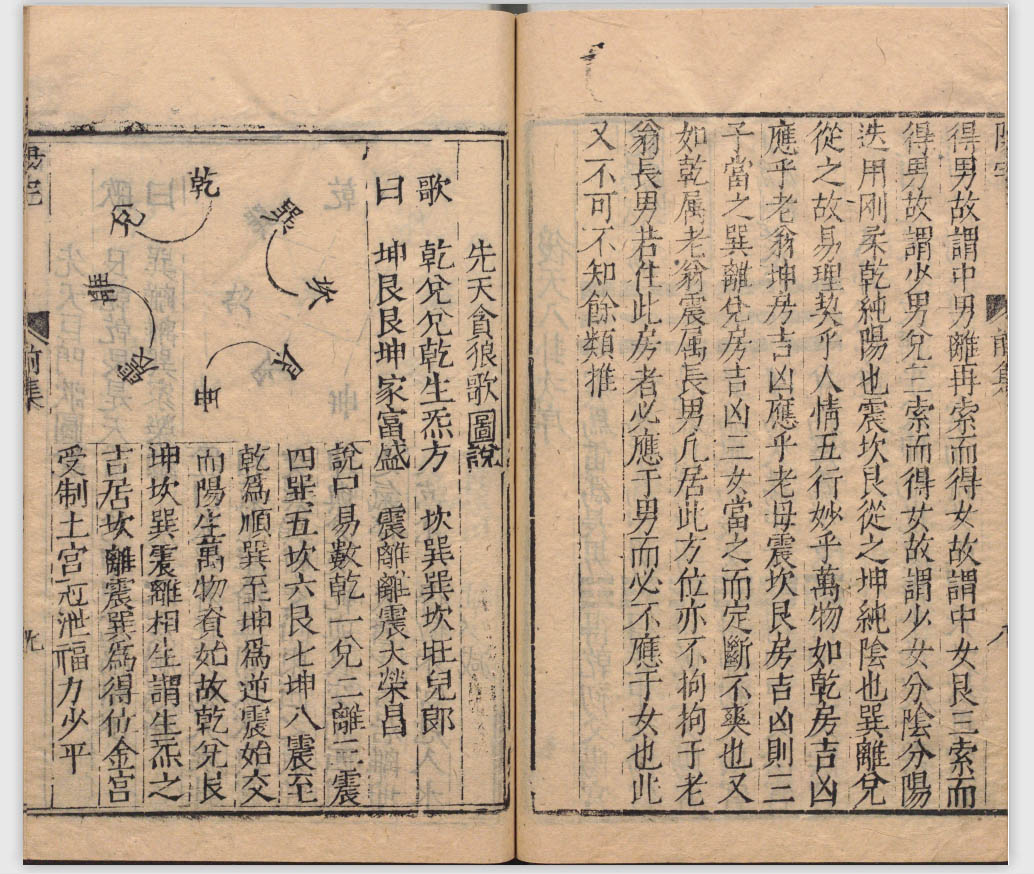 得男故謂中男離再索而得女故謂中女艮三索而
得男故謂少男兌三索而得女故謂少女分陰分陽
迭用剛柔乾純陽也震坎艮從之坤純陰也巽離兌
從之故易理契乎人情五行妙乎萬物如乾房吉凶
應乎老翁坤房吉凶應乎老母震坎艮房吉凶則三
子當之巽離兌房吉凶三女當之而定斷不爽也又
如乾属老翁震属長男凡居此方位亦不拘拘于老
翁長男若住此房者必應于男而必不應于女也此
又不可不知餘類推
八
先天貪狼歌圖說
歌 乾兌兌乾生炁方 坎巽巽坎旺兒郎
曰 坤艮艮坤家富盛 震離離震大榮昌
乾
兌
離
震
巽
坎
艮
坤
說曰易數乾一兌二離三震
四巽五坎六艮七坤八震至
乾爲順巽至坤爲逆震始交
而陽生萬物資始故乾兌艮
坤坎巽震離相生謂生炁之
吉居坎離震巽爲得位金宮
受制土宮尅泄福力少平
前集
九